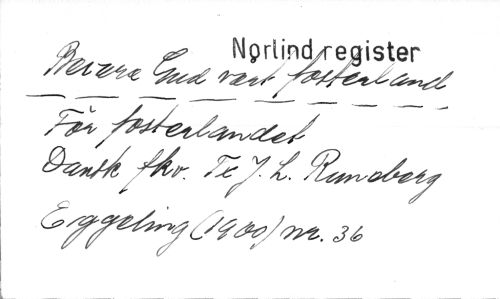 Norlind register
Bevara Gud vårt fosterland
För fosterlandet
Dansk fkv. Tx J. L. Runeberg
Eggeling (1900) nr. 36